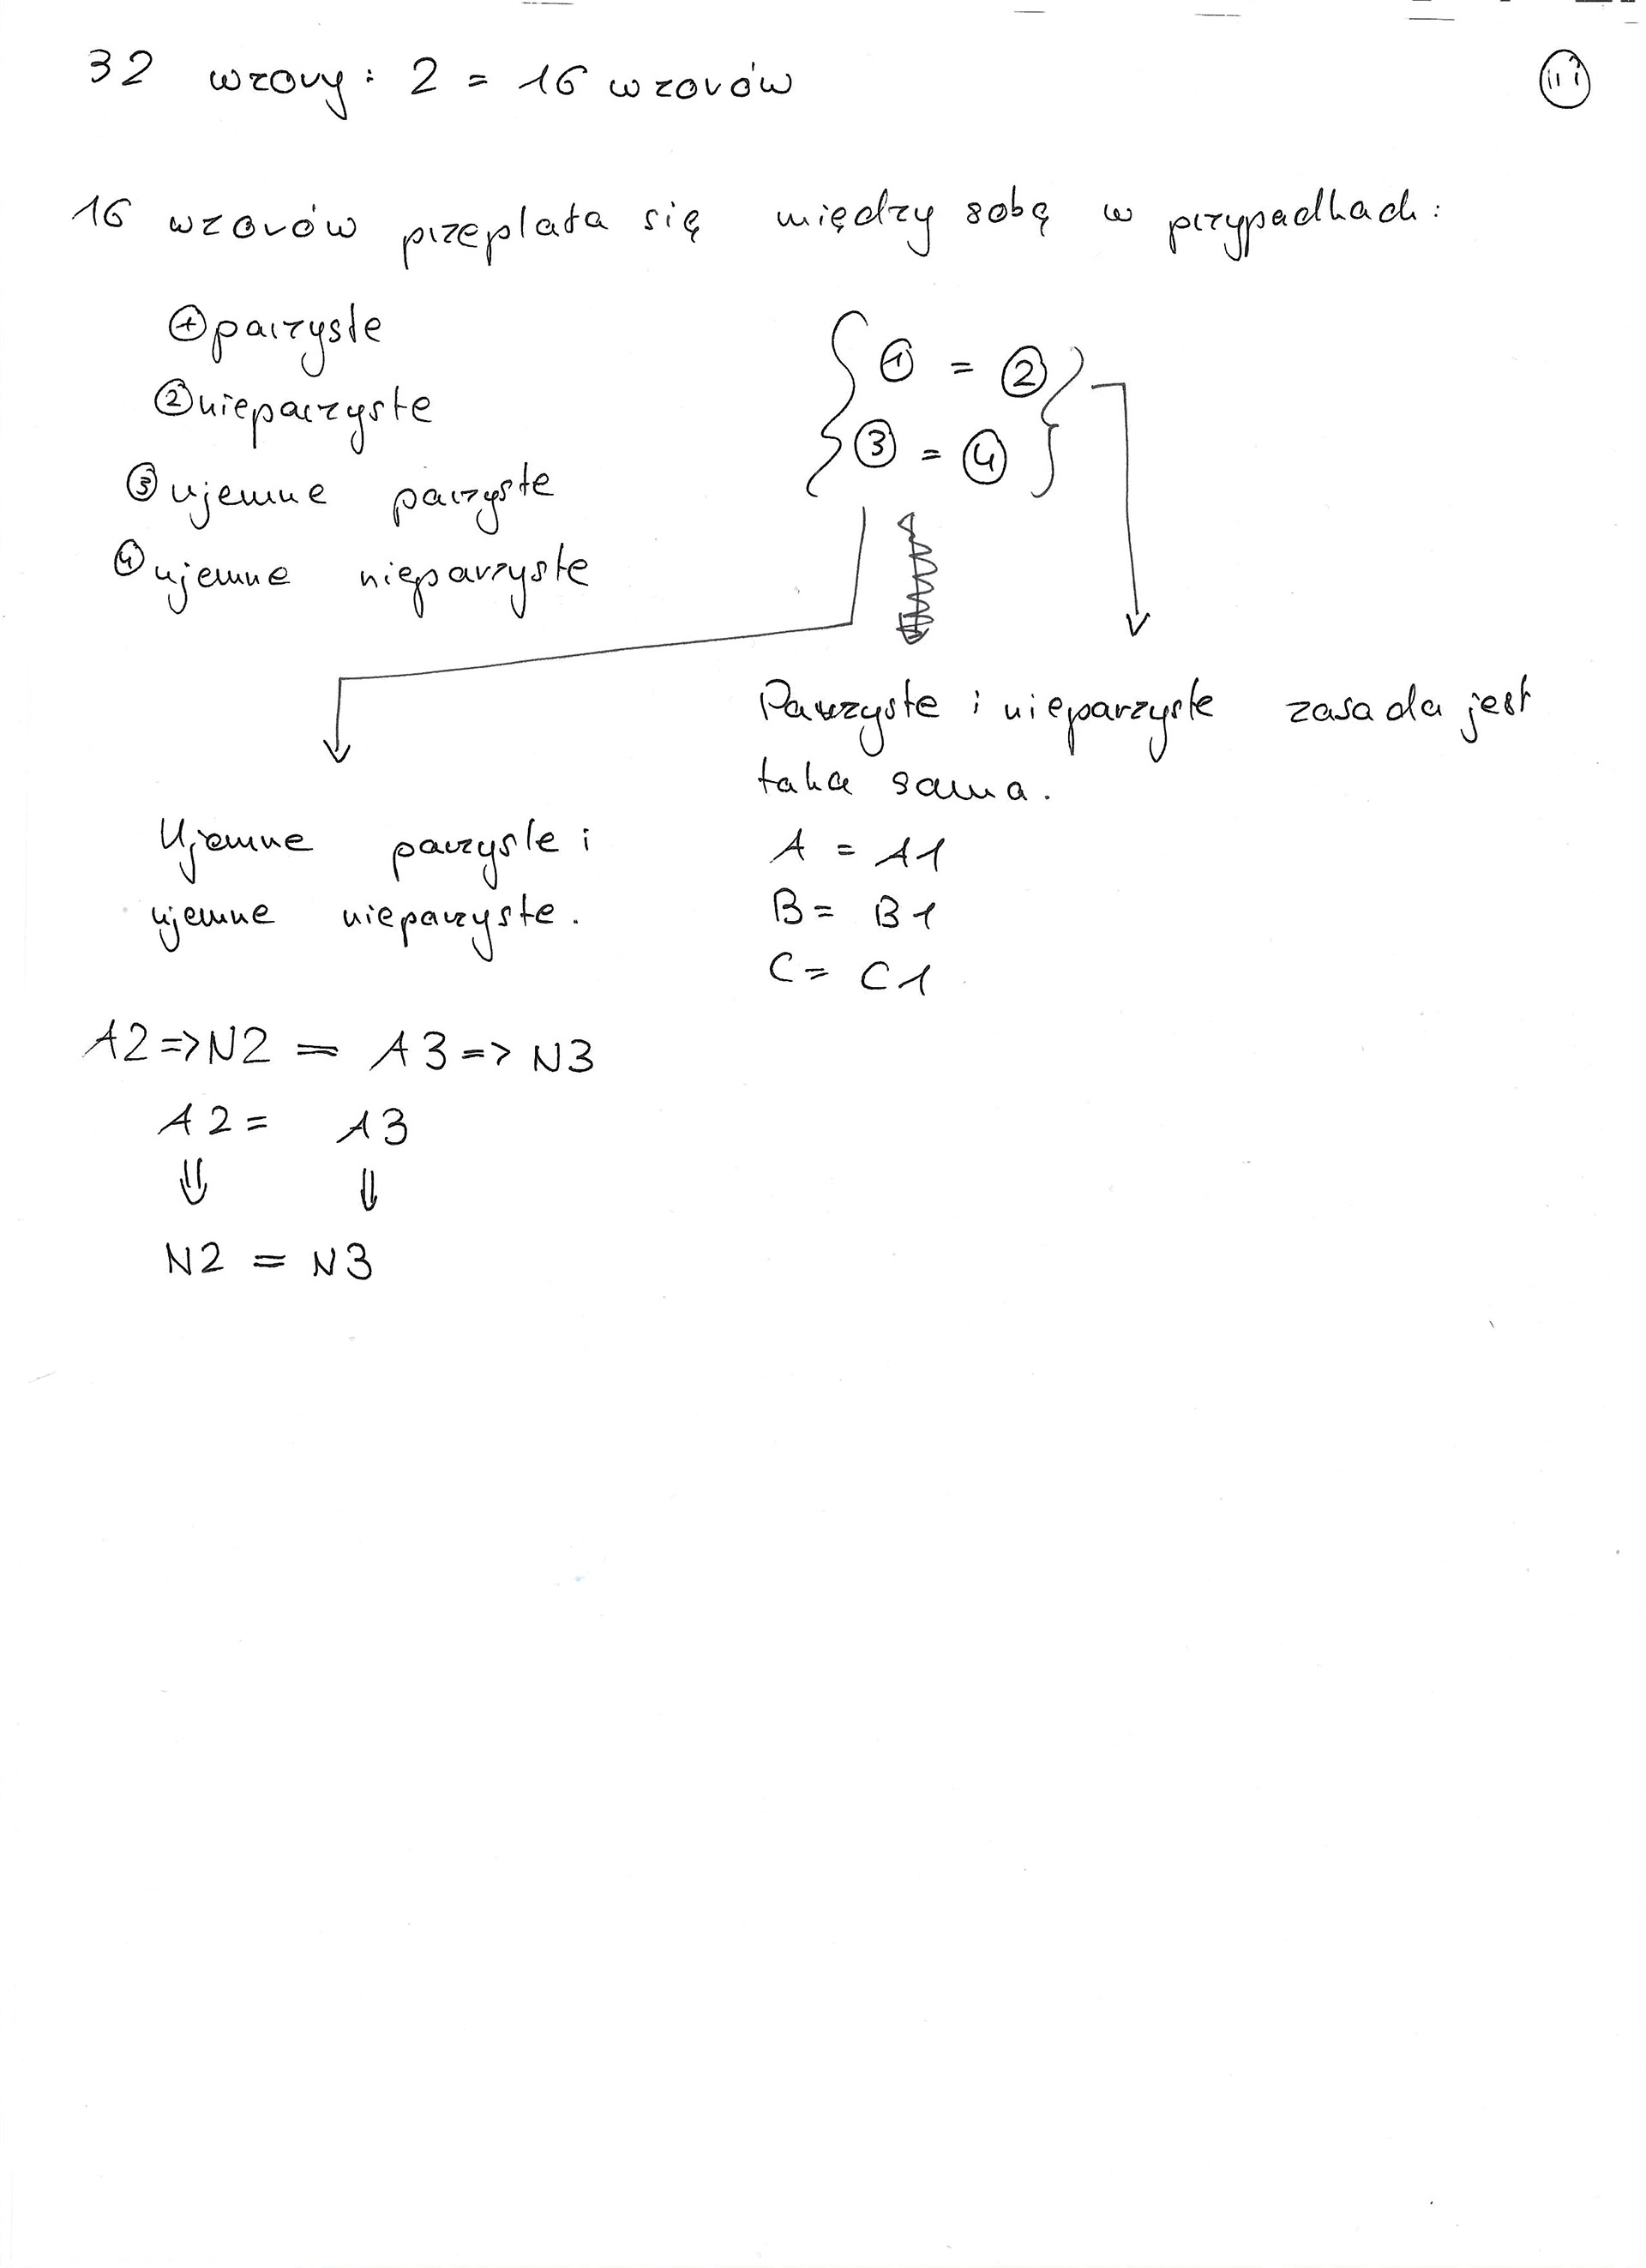 32 wzory : 2 = 16 wzorów
16 wzorów przeplata się między sobą w przypadkach:
① parzyste
② nieparzyste
③ ujemne parzyste
④ ujemne nieparzyste
① = ②
③ = ④
Parzyste i nieparzyste zasada jest
taka sama.
A = A1
B = B1
C = C1
Ujemne parzyste i
ujemne nieparzyste.
A2 => N2 = A3 => N3
A2 = A3
⇓ ⇓
N2 = N3